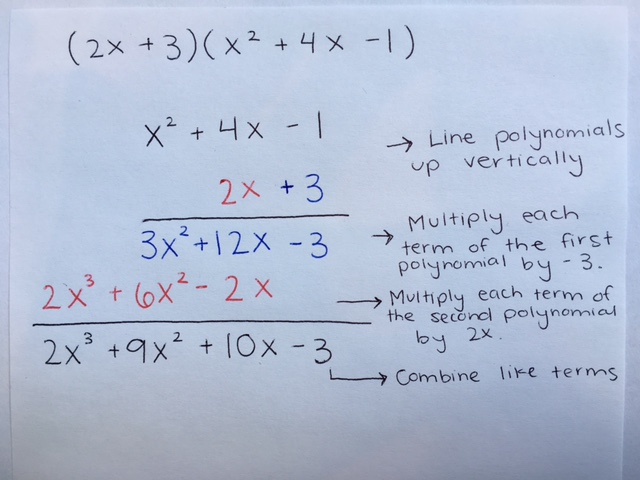 (2x + 3)(x² + 4x - 1)
x² + 4x - 1
→ Line polynomials
up vertically
2x + 3
3x² + 12x - 3
→ Multiply each
term of the first
polynomial by - 3.
2x³ + 6x² - 2x
→ Multiply each term of
the second polynomial
by 2x.
2x³ + 9x² + 10x - 3
→ Combine like terms